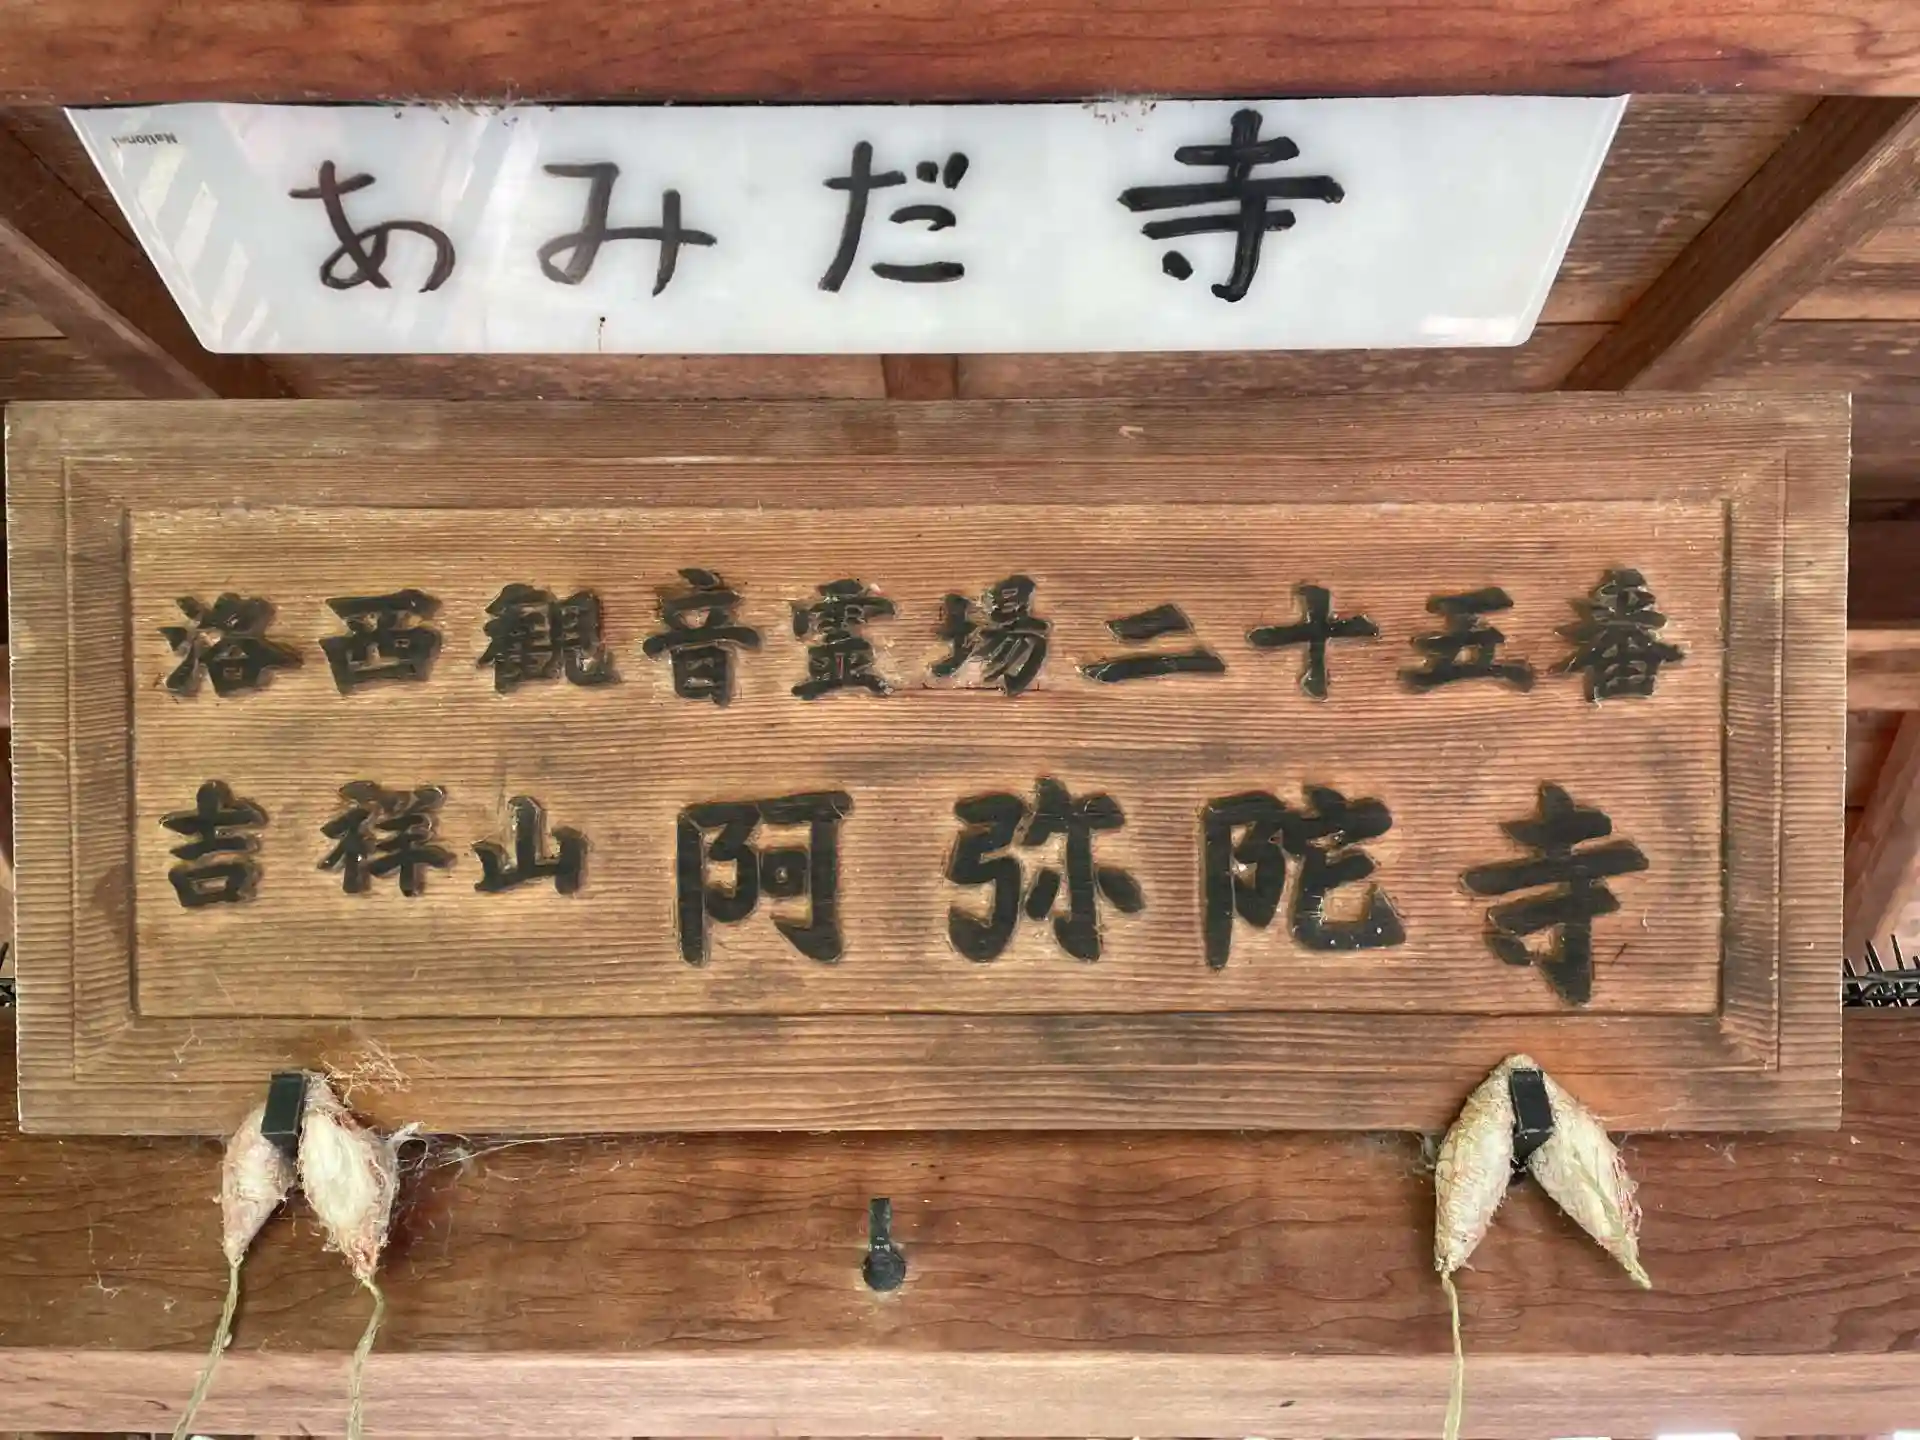 National
あみだ寺
洛西観音霊場二十五番
吉祥山阿弥陀寺